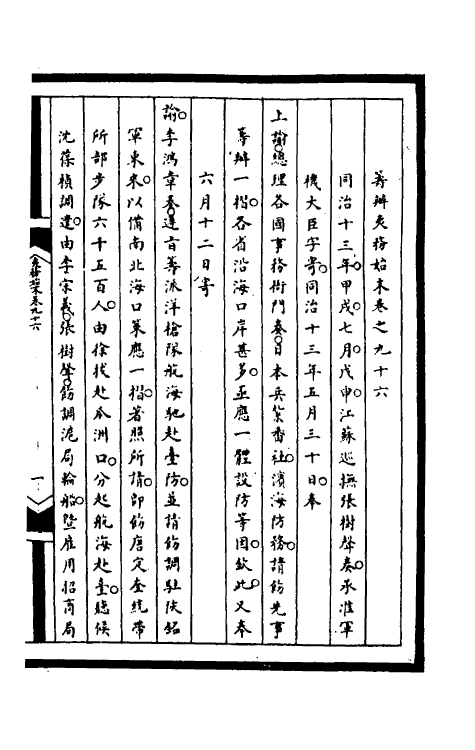 籌辦夷務始末卷之九十六
同治十三年甲戌七月戊申江蘇巡撫張樹聲奏承准軍
機大臣字寄同治十三年五月三十日奉
上諭總理各國事務衙門奏日本兵紮番社濱海防務請飭先事
籌辦一摺各省沿海口岸甚多亟應一體設防等因欽此又奉
六月十二日寄
諭李鴻章奏遵旨籌派洋槍隊航海馳赴臺防並請飭調駐陝銘
軍東來以備南北海口策應一摺著照所請即飭唐定奎統帶
所部步隊六千五百人由徐拔赴瓜洲口分起航海赴臺聽候
沈葆楨調遣由李宗羲張樹聲飭調滬局輪船暨雇用招商局
夷務始末卷九十六
一